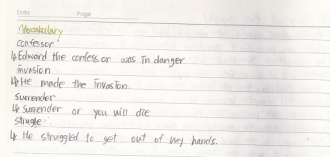 Date Page
Vocabulary
confessor
↳ Edward the confessor was in danger
invasion
↳ He made the invasion.
Surrender
↳ surrender or you will die
struggle
↳ He struggled to get out of my hands.